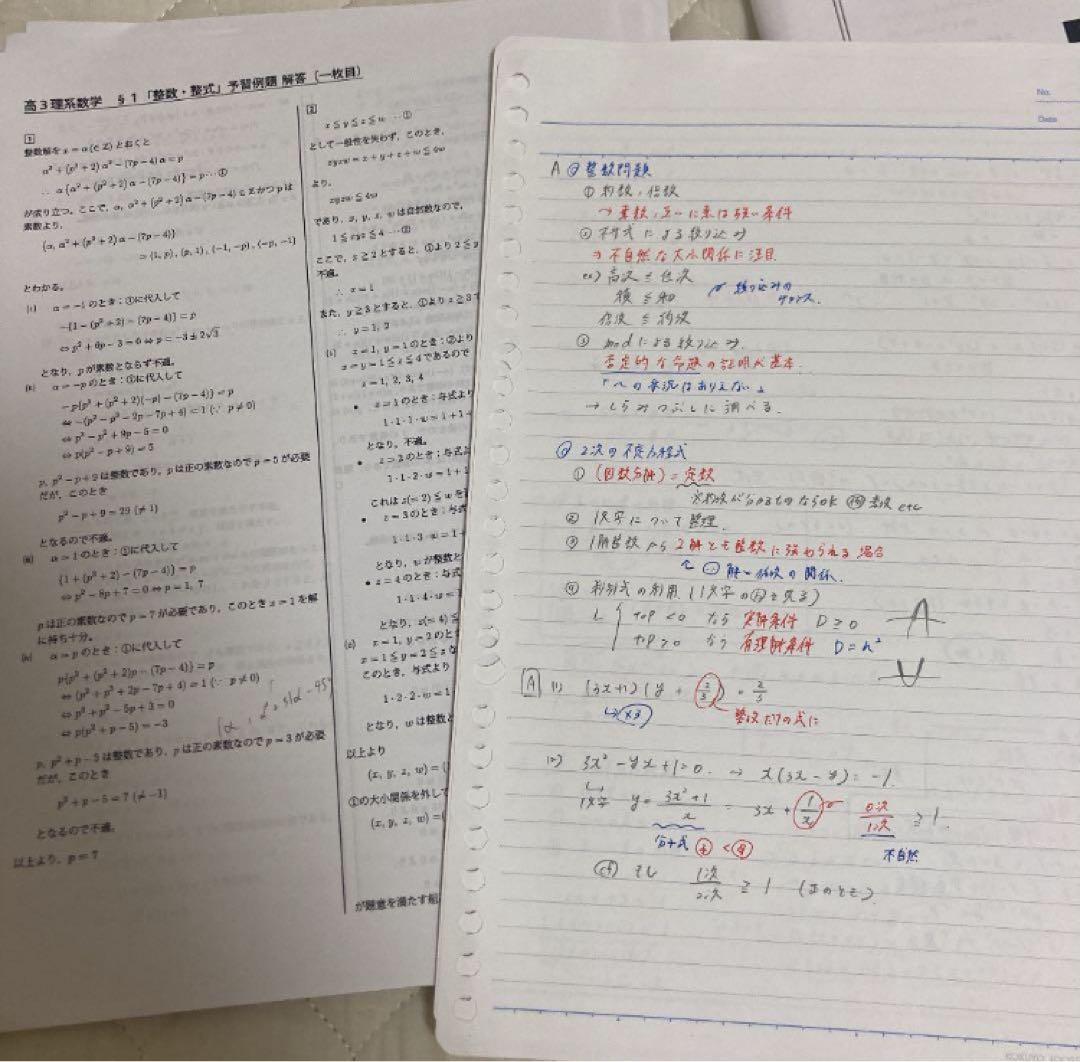 高3理系数学 §1「整数・整式」予習例題 解答（一枚目）
1
整数解を x = α (∈ Z) とおくと
α³ + (p² + 2) α² − (7p − 4) α = p
∴ α{α² + (p² + 2) α − (7p − 4)} = p …①
が成り立つ。ここで、α, α² + (p² + 2) α − (7p − 4) ∈ Z かつ p は
素数より、
(α, α² + (p² + 2) α − (7p − 4))
= (1, p), (p, 1), (−1, −p), (−p, −1)
とわかる。
(i) α = −1 のとき：①に代入して
−{1 − (p² + 2) − (7p − 4)} = p
⇔ p² + 6p − 3 = 0 ⇔ p = −3 ± 2√3
となり、p が素数とならず不適。
(ii) α = −p のとき：①に代入して
⇔ p³ − p² + 9p − 5 = 0
⇔ p(p² − p + 9) = 5
p, p² − p + 9 は整数であり、p は正の素数なので p = 5 が必要
だが、このとき
p² − p + 9 = 29 (≠ 1)
となるので不適。
(iii) α = 1 のとき：①に代入して
{1 + (p² + 2) − (7p − 4)} = p
⇔ p² − 8p + 7 = 0 ⇔ p = 1, 7
p は正の素数なので p = 7 が必要であり、このとき x = 1 を解
に持ち十分。
(iv) α = p のとき：①に代入して
p{p² + (p² + 2)p − (7p − 4)} = p
⇔ (p³ + p² + 2p − 7p + 4) = 1 (∵ p ≠ 0)
⇔ p³ + p² − 5p + 3 = 0
⇔ p(p² + p − 5) = −3
p, p² + p − 5 は整数であり、p は正の素数なので p = 3 が必要
だが、このとき
p² + p − 5 = 7 (≠ −1)
となるので不適。
以上より、p = 7
2
x ≤ y ≤ z ≤ w …①
として一般性を失わず、このとき、
xyzw = x + y + z + w ≤ 4w
より、
xyzw ≤ 4w
であり、x, y, z, w は自然数なので、
1 ≤ xyz ≤ 4 …②
ここで、x ≥ 2 とすると、①より 2 ≤ y
不適。
∴ x = 1
また、y ≥ 3 とすると、①より z ≥ 3 で
∴ y = 1, 2
(i) x = 1, y = 1 のとき：②より
x = y = 1 ≤ z ≤ 4 であるので
z = 1, 2, 3, 4
• z = 1 のとき：与式より
1・1・1・w = 1 + 1 +
となり、不適。
• z = 2 のとき：与式よ
1・1・2・w = 1 + 1
これは z(= 2) ≤ w を
• z = 3 のとき：与式
1・1・3・w = 1 +
となり、w が整数と
• z = 4 のとき：与式
1・1・4・w =
となり、z(= 4) ≤
(ii) x = 1, y = 2 のと
x = 1 ≤ y = 2 ≤ z な
このとき、与式より
1・2・2・w = 1
となり、w は整数と
以上より
(x, y, z, w) = (
①の大小関係を外して
(x, y, z, w) = (
が題意を満たす組
No.
Date
A ◎ 整数問題
① 約数、倍数
→ 素数、互いに素は強い条件
② 不等式による絞り込み
→ 不自然な大小関係に注目
ex) 高次 ≤ 低次
積 ≤ 和 絞り込みのチャンス.
倍数 ≤ 約数
③ mod による絞り込み.
否定的な命題の証明が基本.
「〜の状況はありえない」
→ しらみつぶしに調べる.
◎ 2次の不定方程式
① (因数分解) = 定数
※約数が分かるものならOK 例 素数 etc
② 1文字について整理.
③ 1解整数から2解とも整数に強められる場合
解と係数の関係.
④ 判別式の利用 (1文字の2次と見る)
top < 0 なら 実数条件 D ≥ 0
top > 0 なら 有理数条件 D = n²
A (1) (3x+1)(y + 2/3) = 2/3
↳ ×3 整数だけの式に
(2) 3x² − yx + 1 = 0. → x(3x − y) = −1.
1文字 y = (3x²+1)/x = 3x + 1/x 0次/1次 ≥ 1.
分数式 不自然
cf もし 1次/2次 ≥ 1 (正のとき)